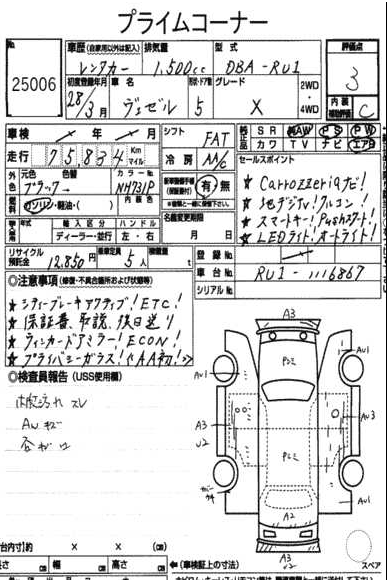 プライムコーナー
No.
25006
車歴(自家用以外は記入) 排気量 型式
レンタカー 1,500cc DBA-RU1
評価点
3
内装
C
初度登録年月 車名 形状・ドア数 グレード
28/3月 ヴェゼル 5 X
2WD
・
4WD
車検 年 月
シフト FAT
走行 75,834 Km
マイル
冷房 AA/C
SR AW PS PW
カワ TV ナビ エアB
セールスポイント
元色 色替 カラーNo. 内装色
ブラック NH731P
燃料 ガソリン・軽油・( )
有・無
★ Carrozzeriaナビ!
★ 地デジTV!アルコン!
★ スマートキー!Pushスタート!
★ LEDライト!オートライト!
輸入区分 ハンドル
ディーラー・並行 左・右
名義変更期限
月 日
リサイクル預託金 12,850円 乗車定員 5人 積載量
登録No.
車台No. RU1-1116867
シリアルNo.
◎注意事項(修復・不具合箇所および状態等)
★ シティーブレーキアクティブ!ETC!
★ 保証書、取説、後日送り
★ ウィンカードアミラー!ECON!
★ プライバシーガラス!<AA初!>
◎検査員報告(USS使用欄)
内張汚れ スレ
AWキズ
A3
AU1
AU1
A3
U2
A3
U2
AU1
A2
A3
U2
スペア
長さ cm 幅 cm 高さ cm
(車検証上の寸法)